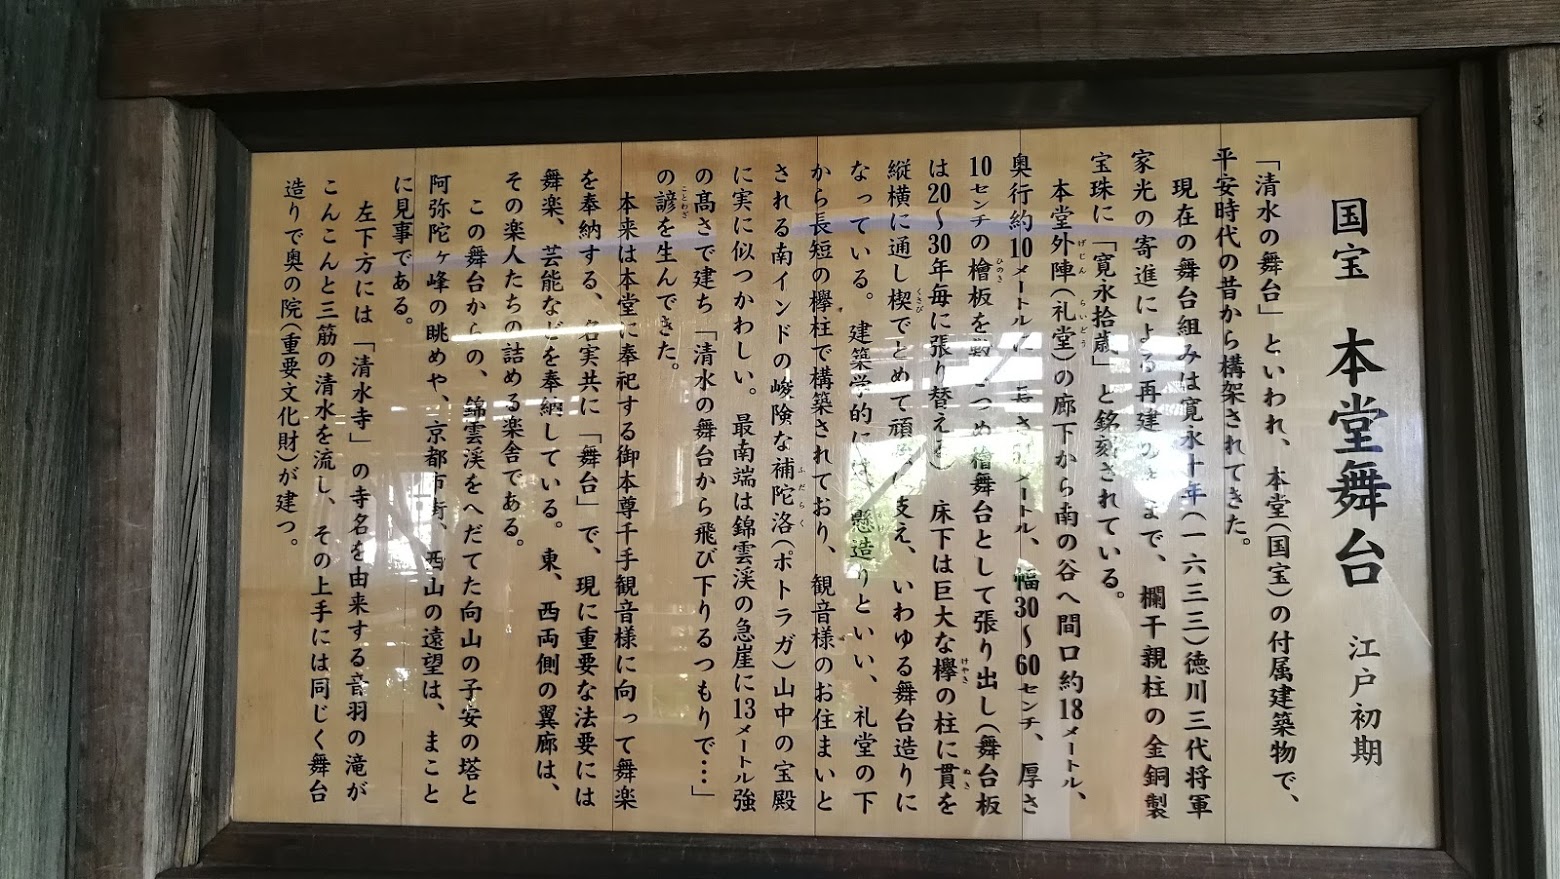 国宝 本堂舞台 江戸初期
「清水の舞台」といわれ、本堂(国宝)の付属建築物で、
平安時代の昔から構架されてきた。
現在の舞台組みは寛永十年(一六三三)徳川三代将軍
家光の寄進による再建のままで、欄干親柱の金銅製
宝珠に「寛永拾歳」と銘刻されている。
本堂外陣(礼堂)の廊下から南の谷へ間口約18メートル、
奥行約10メートルに、長さ メートル、幅30〜60センチ、厚さ
10センチの檜板を敷 つめ檜舞台として張り出し(舞台板
は20〜30年毎に張り替える)床下は巨大な欅の柱に貫を
縦横に通し楔でとめて頑 に支え、いわゆる舞台造りに
なっている。建築学的には、懸造りといい、礼堂の下
から長短の欅柱で構築されており、観音様のお住まいと
される南インドの峻険な補陀洛(ポトラガ)山中の宝殿
に実に似つかわしい。最南端は錦雲渓の急崖に13メートル強
の高さで建ち「清水の舞台から飛び下りるつもりで…」
の諺を生んできた。
本来は本堂に奉祀する御本尊千手観音様に向って舞楽
を奉納する、名実共に「舞台」で、現に重要な法要には
舞楽、芸能などを奉納している。東、西両側の翼廊は、
その楽人たちの詰める楽舎である。
この舞台からの、錦雲渓をへだてた向山の子安の塔と
阿弥陀ヶ峰の眺めや、京都市街、西山の遠望は、まこと
に見事である。
左下方には「清水寺」の寺名を由来する音羽の滝が
こんこんと三筋の清水を流し、その上手には同じく舞台
造りで奥の院(重要文化財)が建つ。